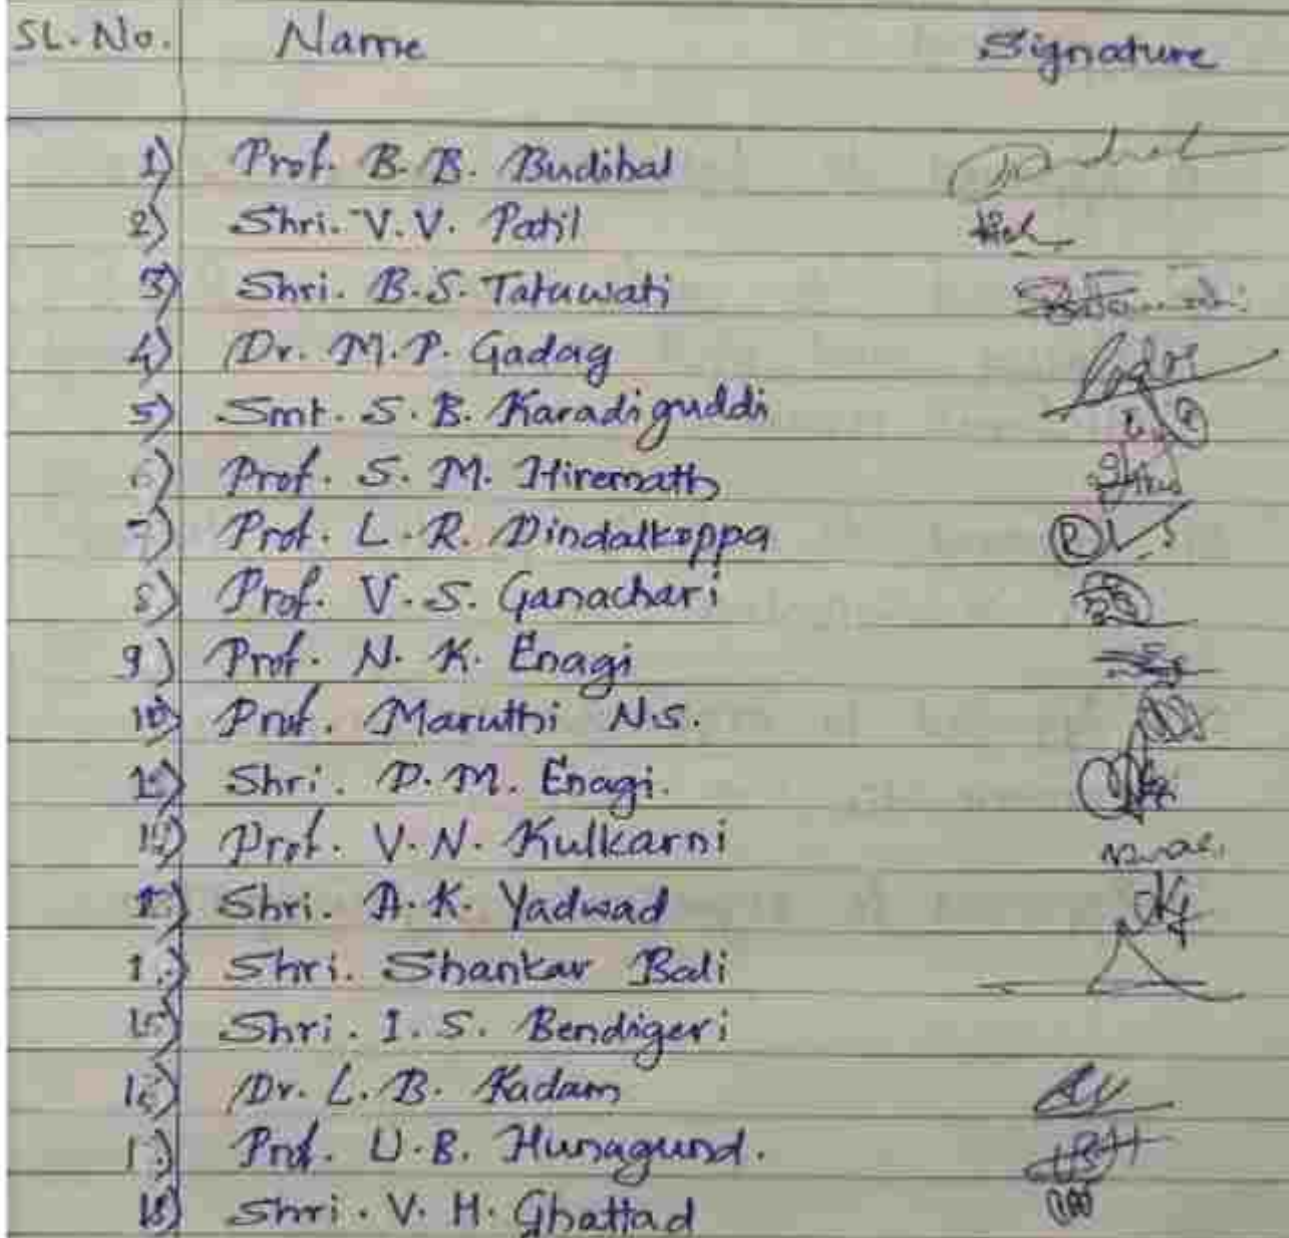 SL. No. Name Signature
1) Prof. B. B. Budihal
2) Shri. V. V. Patil
3) Shri. B. S. Tatuwati
4) Dr. M. P. Gadag
5) Smt. S. B. Karadiguddi
6) Prof. S. M. Hiremath
7) Prof. L. R. Dindalkoppa
8) Prof. V. S. Ganachari
9) Prof. N. K. Enagi
10) Prof. Maruthi N.S.
Shri. D. M. Enagi.
Prof. V. N. Kulkarni
Shri. A. K. Yadwad
Shri. Shankar Bali
15) Shri. I. S. Bendigeri
16) Dr. L. B. Kadam
Prof. U. B. Hunagund.
18) Shri. V. H. Ghattad